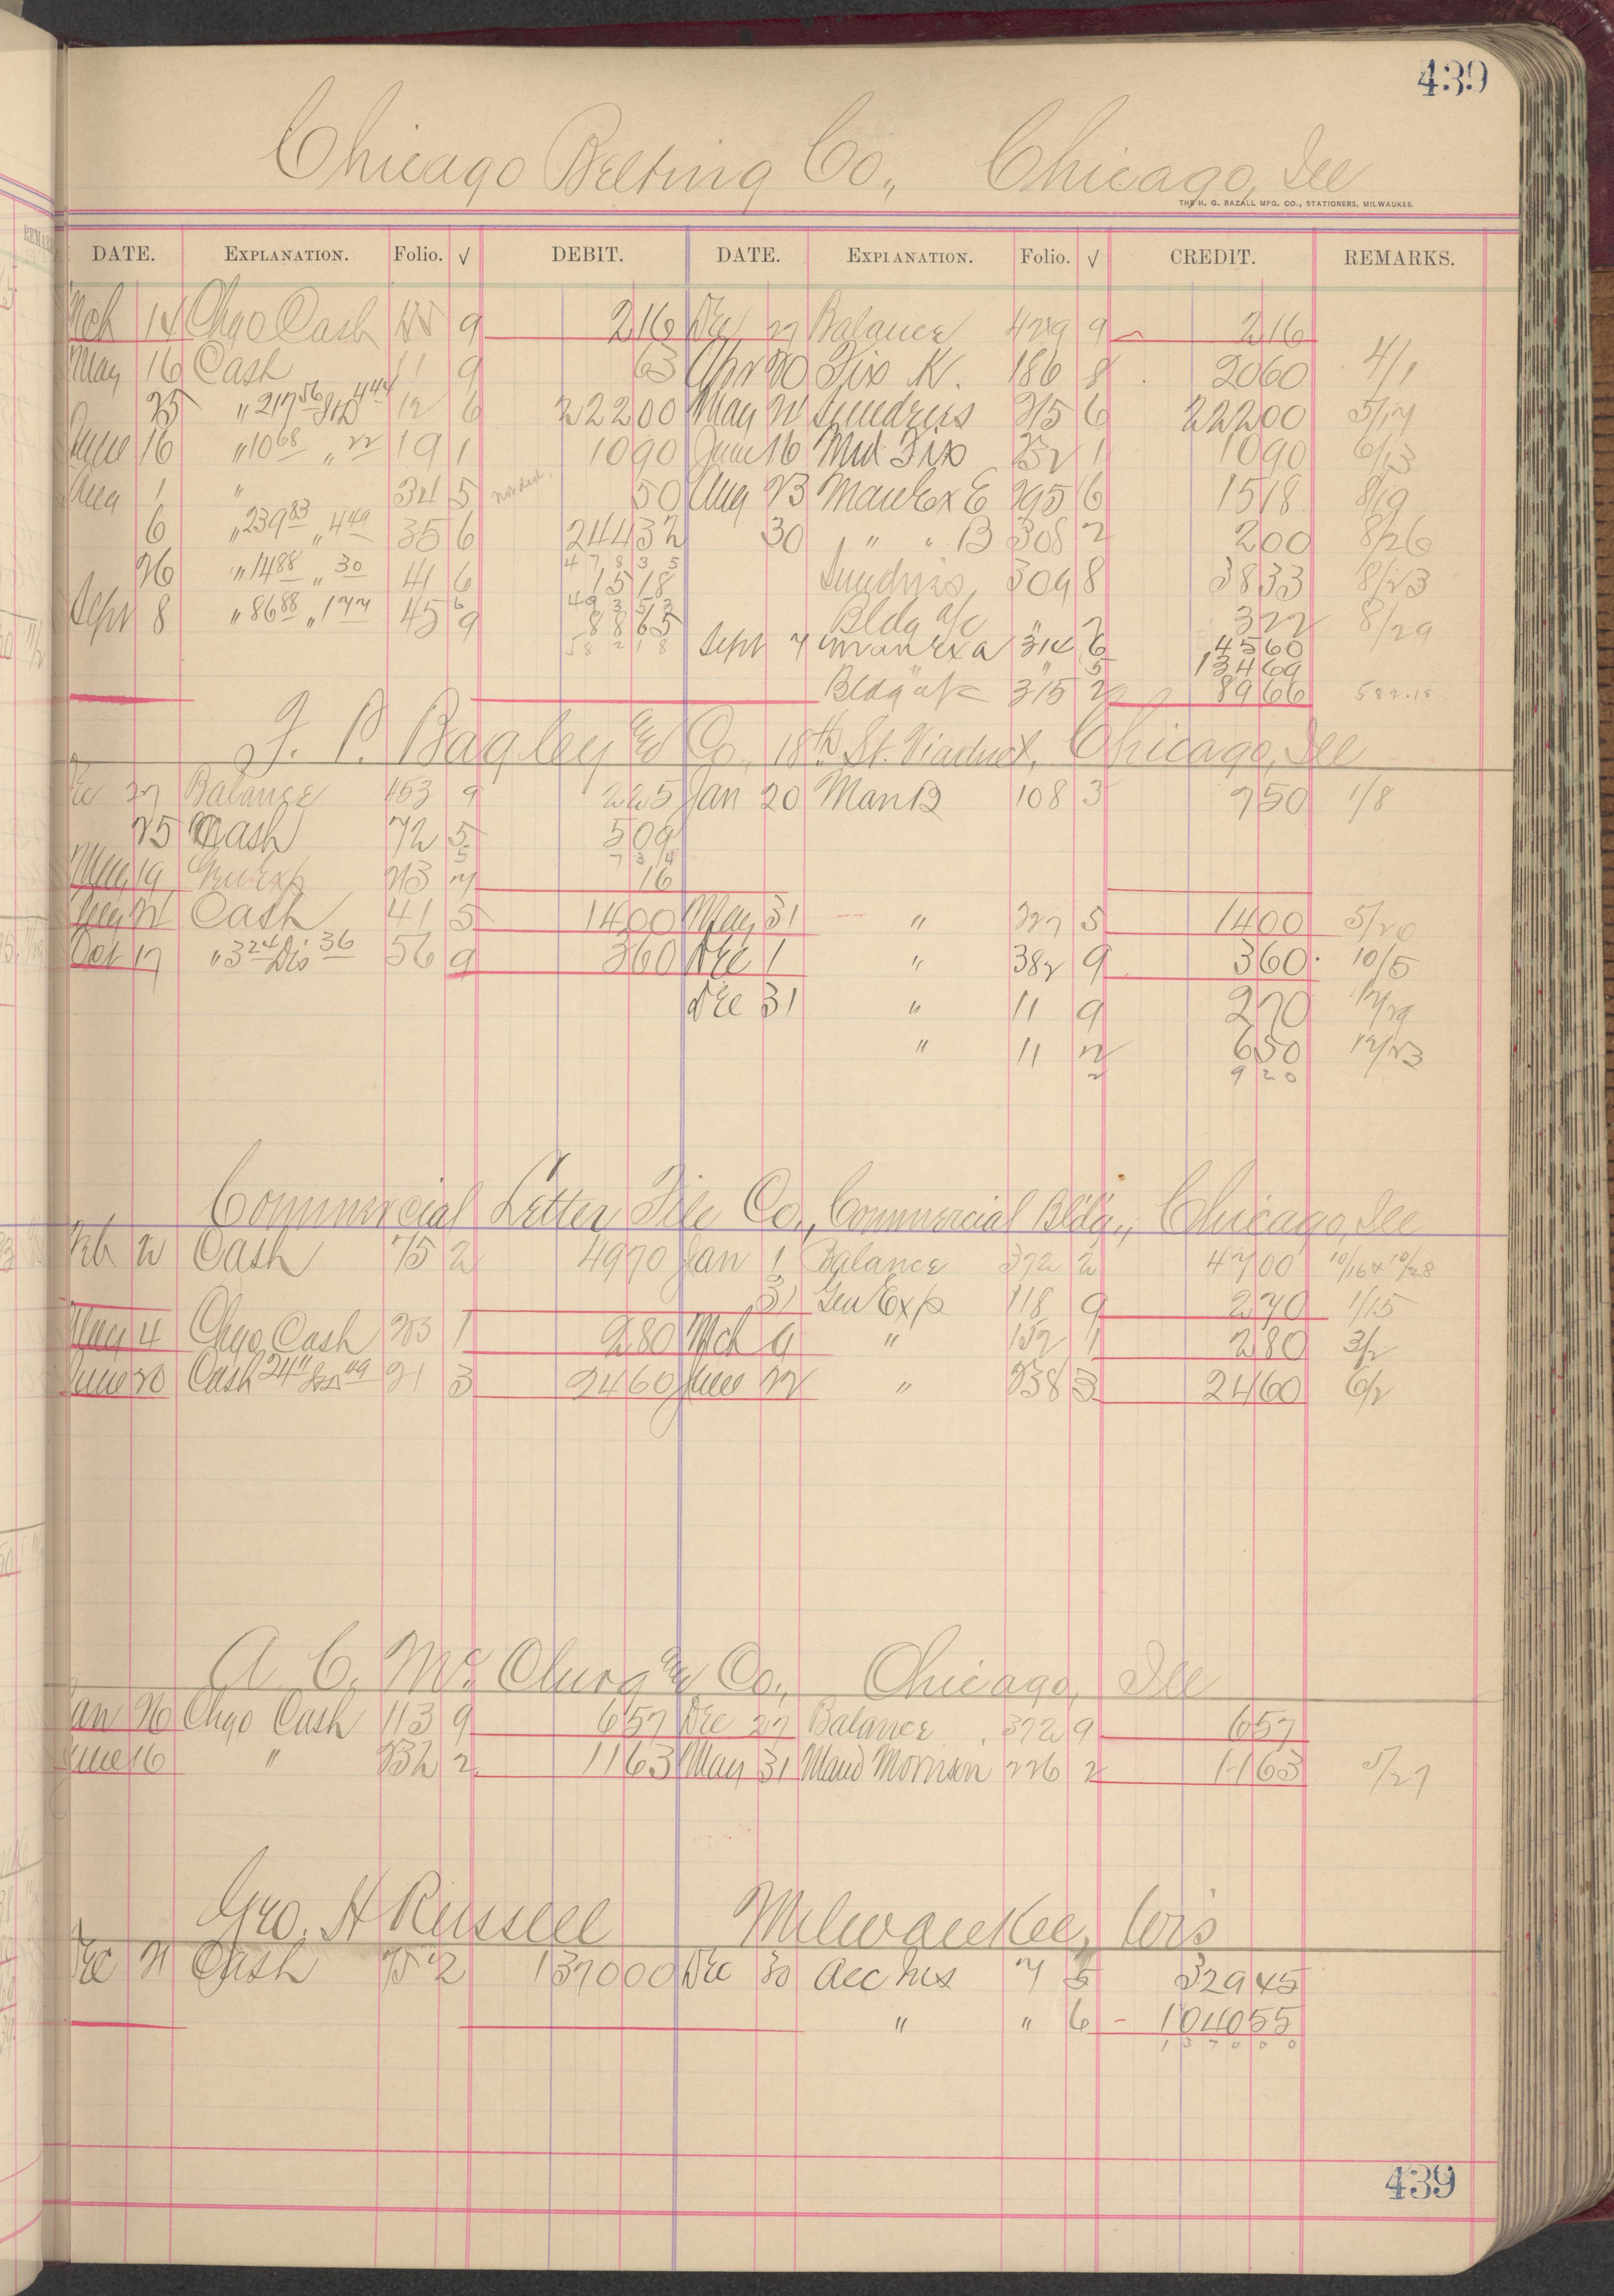 439
Chicago Belting Co., Chicago, Ill
THE H. G. RAZALL MFG. CO., STATIONERS, MILWAUKEE.
DATE. EXPLANATION. Folio. √ DEBIT. DATE. EXPLANATION. Folio. √ CREDIT. REMARKS.
Mch 14 Chgo Cash 9 216 Dec 27 Balance 429 9 216
May 16 Cash 11 9 63 Apr 30 Fix K. 186 8 2060 4/1
25 " 217 56 444 12 6 22200 May 21 Sundries 215 6 22200 5/17
June 16 " 10 68 " 22 19 1 1090 June 16 Mid Fix 1 1090 6/13
Aug 1 " 34 5 50 Aug 23 Man Ex E 295 6 1518 8/19
6 " 239 83 " 4 49 35 6 24432 30 " " B 308 2 200 8/26
47835
26 " 14 88 " 30 41 6 1518 Sundries 309 8 3833 8/23
49353
Sept 8 " 86 88 " 1 77 45 9 8865 Bldg a/c " 2 322 8/29
58218 Sept 7 Man Ex A 314 6 4560
" " 5 13469
Bldg a/c 315 2 8966 582.18
J. P. Bagley & Co., 18th St. Viaduct, Chicago, Ill
Dec 27 Balance 453 9 225 Jan 20 Man B 108 3 750 1/8
25 Cash 72 5 509
734
May 19 Gen Exp 213 7 16
July 21 Cash 41 5 1400 May 31 " 227 5 1400 5/20
Oct 17 " 3 24 Dis 36 56 9 360 Dec 1 " 382 9 360 10/5
Dec 31 " 11 9 270 12/29
" 11 2 650 12/23
920
Commercial Letter File Co., Commercial Bldg., Chicago, Ill
Feb 2 Cash 75 2 4970 Jan 1 Balance 372 2 4700 10/16 x 10/28
31 Gen Exp 118 9 270 1/15
May 4 Chgo Cash 203 1 280 Mch 9 " 152 1 280 3/2
June 20 Cash 24 11 49 21 3 2460 June 22 " 238 3 2460 6/2
A. C. McClurg & Co., Chicago, Ill
Jan 26 Chgo Cash 113 9 657 Dec 27 Balance 372 9 657
June 16 " 232 2 1163 May 31 Maud Morrison 226 2 1163 5/27
Geo. H Russell Milwaukee, Wis
Dec 21 Cash 75 2 137000 Dec 30 Acc 7 5 32945
" " 6 104055
137000
439